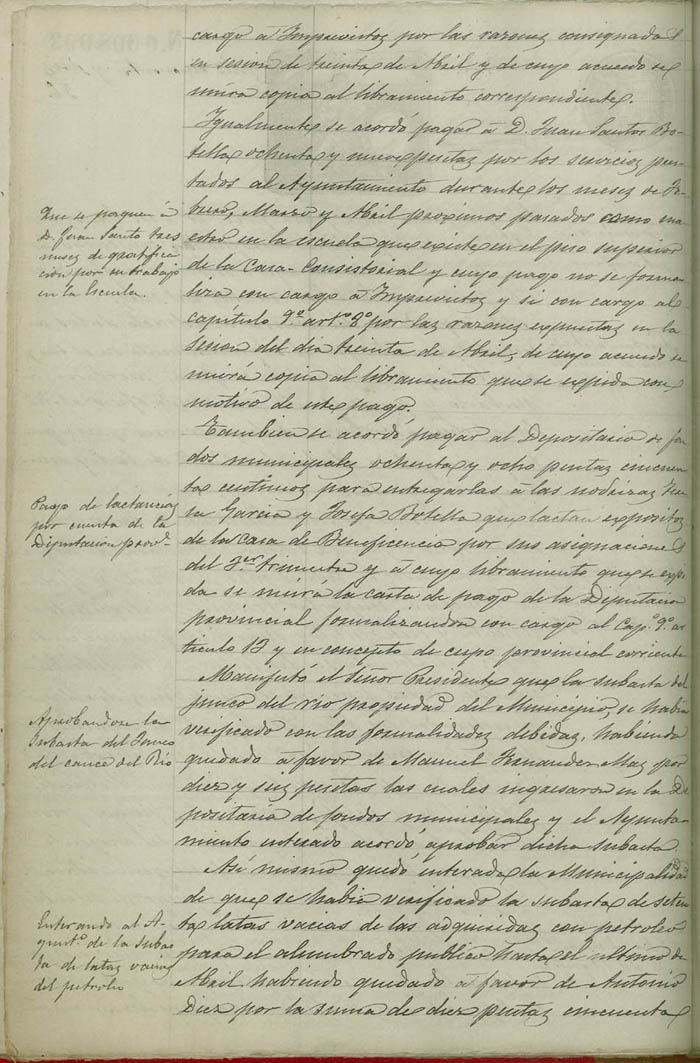 cargo à Imprevistos por las razones consignadas
en sesion de treinta de Abril y de cuyo acuerdo se
unirá copia al libramiento correspondiente.
Igualmente se acordó pagar à D. Juan Santos Bo-
tella ochenta y nueve pesetas por los servicios pres-
tados al Ayuntamiento durante los meses de Fe-
brero, Marzo y Abril proximos pasados como ma-
estro en la escuela que existe en el piso superior
de la Casa-Consistorial y cuyo pago no se forma-
liza con cargo à Imprevistos y si con cargo al
capítulo 9º artº 8º por las razones expuestas en la
sesion del dia treinta de Abril, de cuyo acuerdo se
unirá copia al libramiento que se expida con
motivo de este pago.
Que se paguen à
D. Juan Santos tres
meses de gratifica-
cion por su trabajo
en la Escuela.
Tambien se acordó pagar al Depositario de fon-
dos municipales ochenta y ocho pesetas cincuen-
ta centimos para entregarlas à las nodrizas
Garcia y Josefa Botella que lactan expositos
de la Casa de Beneficencia por sus asignaciones
del 3er trimestre y à cuyo libramiento que se expi-
da se unirá la carta de pago de la Diputacion
provincial formalizandose con cargo al Capº 9º ar-
ticulo 13 y en concepto de cupo provincial corriente
Pago de lactancias
por cuenta de la
Diputacion provl.
Manifestó el Señor Presidente que la subasta del
junco del rio propiedad del Municipio, se habia
verificado con las formalidades debidas, habiendo
quedado à favor de Manuel Fernandez Mas por
diez y seis pesetas las cuales ingresaron en la De-
positaria de fondos municipales y el Ayunta-
miento enterado acordó aprobar dicha subasta.
Aprobandose la
subasta del Junco
del cauce del Rio
Asi mismo quedó enterada la Municipalidad
de que se habia verificado la subasta de seten-
ta latas vacias de las adquiridas con petroleo
para el alumbrado publico hasta el ultimo de
Abril habiendo quedado à favor de Antonio
Diez por la suma de diez pesetas cincuenta
Enterando al A-
yuntº de la subas-
ta de latas vacias
del petroleo